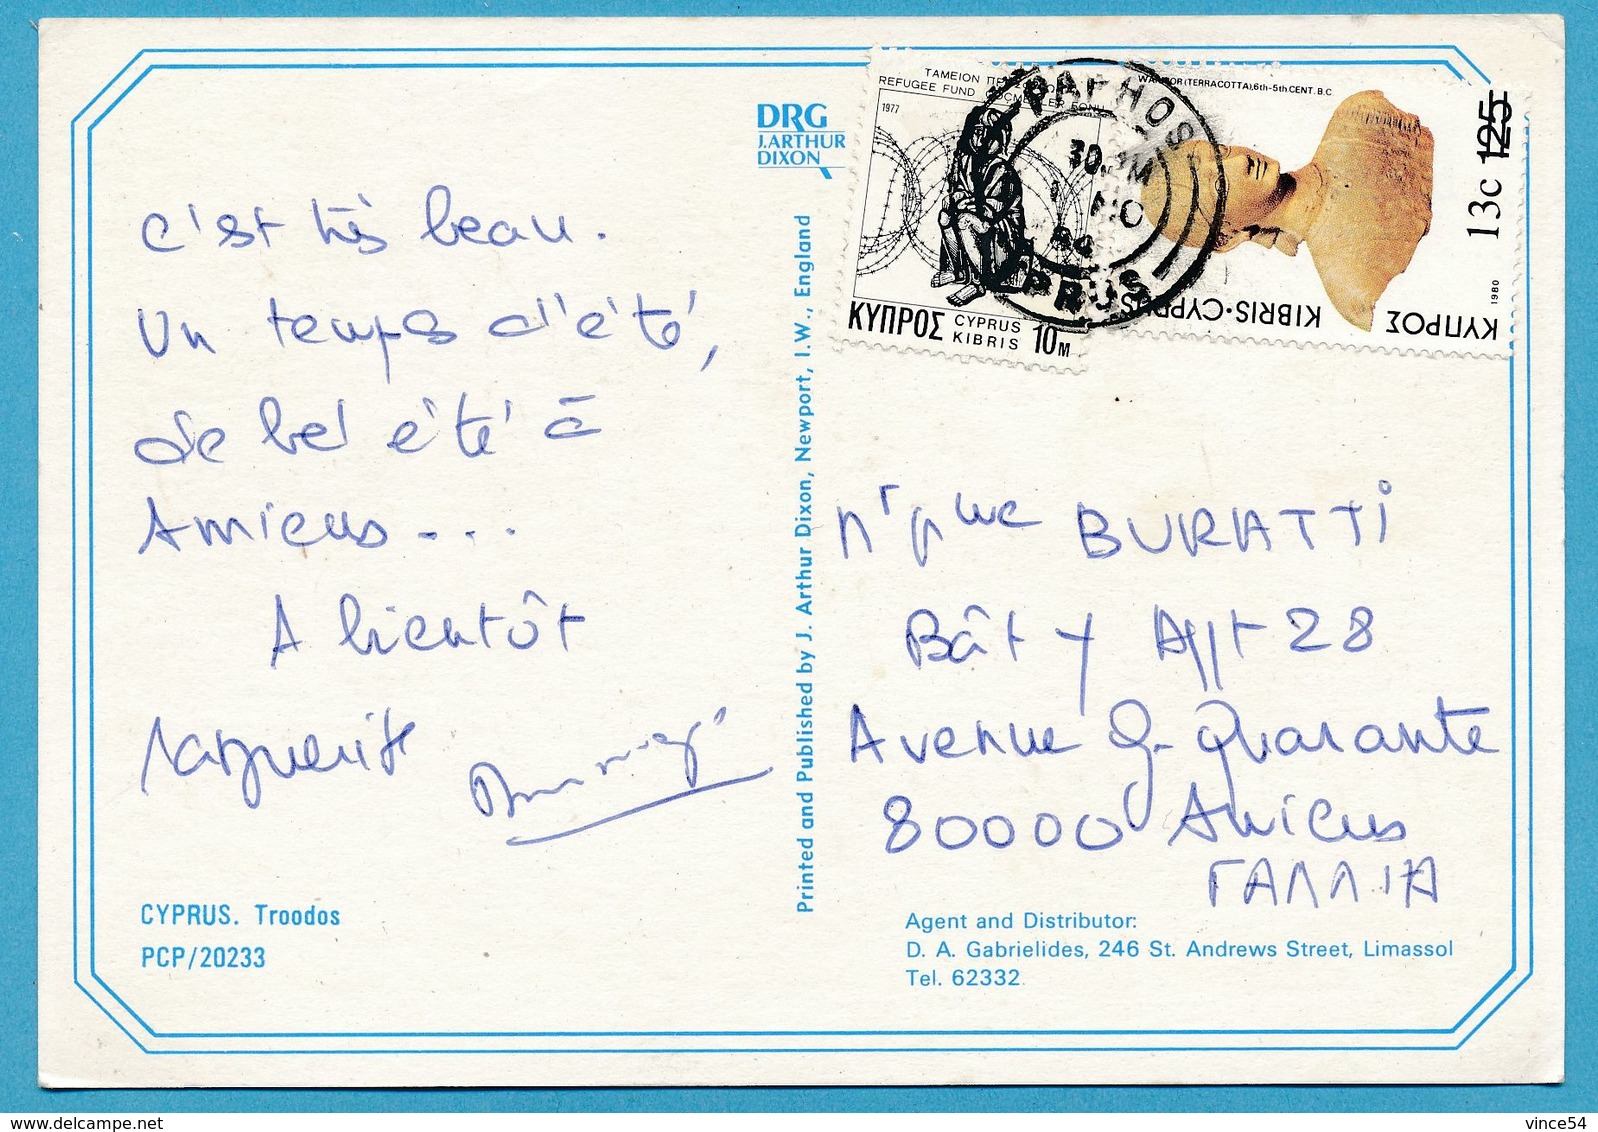 DRG
J.ARTHUR
DIXON
ΤΑΜΕΙΟΝ
REFUGEE FUND
1977
ΚΥΠΡΟΣ CYPRUS KIBRIS 10M
PAPHOS
CYPRUS
WARRIOR (TERRACOTTA), 6th-5th CENT. B.C.
13c 125
1980
ΚΥΠΡΟΣ
KIBRIS·CYPRUS
c'est très beau.
Un temps d'été,
de bel été à
Amiens ...
A bientôt
Marguerite
Printed and Published by J. Arthur Dixon, Newport, I.W., England
BURATTI
Bât Y Appt 28
Avenue G. Quarante
80000 Amiens
ΓΑΛΛΙΑ
CYPRUS. Troodos
PCP/20233
Agent and Distributor:
D. A. Gabrielides, 246 St. Andrews Street, Limassol
Tel. 62332
delcampe.net
vince54